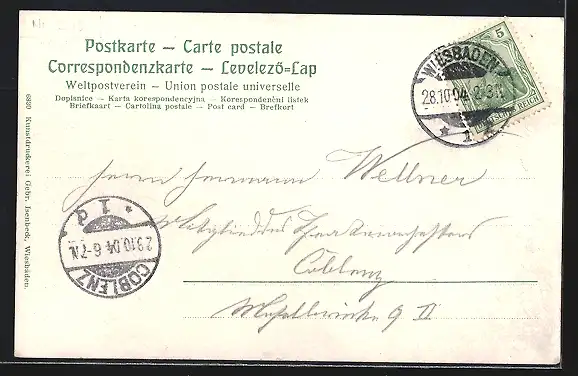 Postkarte – Carte postale
Correspondenzkarte – Levelező=Lap
Weltpostverein – Union postale universelle
Dopisnice – Karta korespondencyjna – Korespondenční listek
Briefkaart – Cartolina postale – Post card – Brefkort
5
DEUTSCHES REICH
WIESBADEN
28.10.04
1
Herrn Hermann Wellner
Mitglied des
Coblenz
9 II
1 d
29.10.04 6-7N.
COBLENZ
6839 Kunstdruckerei Gebr. Isenbeck, Wiesbaden.